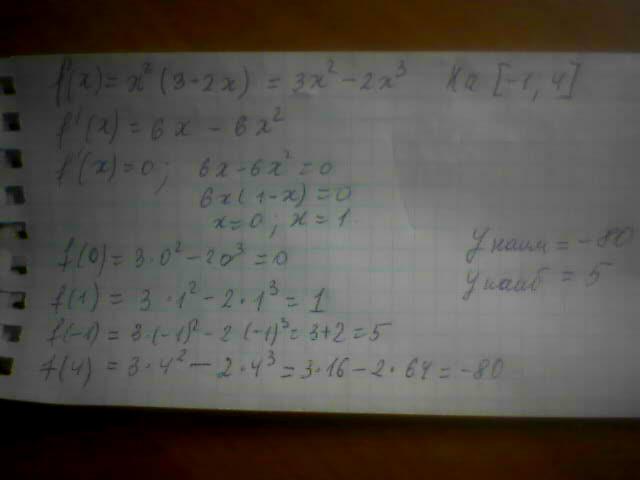 f(x) = x² (3-2x) = 3x² - 2x³ На [-1, 4]
f'(x) = 6x - 6x²
f'(x) = 0; 6x - 6x² = 0
6x(1-x) = 0
x=0; x=1.
f(0) = 3·0² - 20³ = 0
f(1) = 3·1² - 2·1³ = 1
f(-1) = 3·(-1)² - 2(-1)³ = 3+2 = 5
f(4) = 3·4² - 2·4³ = 3·16 - 2·64 = -80
y наим = -80
y наиб = 5